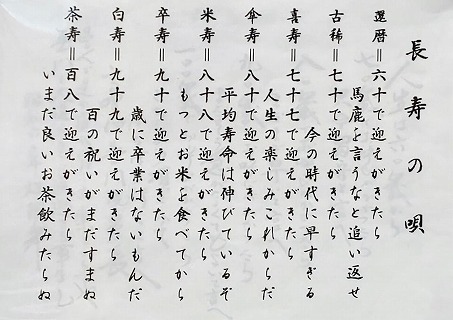 長寿の唄
還暦＝六十で迎えがきたら
馬鹿を言うなと追い返せ
古稀＝七十で迎えがきたら
今の時代に早すぎる
喜寿＝七十七で迎えがきたら
人生の楽しみこれからだ
傘寿＝八十で迎えがきたら
平均寿命は伸びているぞ
米寿＝八十八で迎えがきたら
もっとお米を食べてから
卒寿＝九十で迎えがきたら
歳に卒業はないもんだ
白寿＝九十九で迎えがきたら
百の祝いがまだすまぬ
茶寿＝百八で迎えがきたら
いまだ良いお茶飲みたらぬ